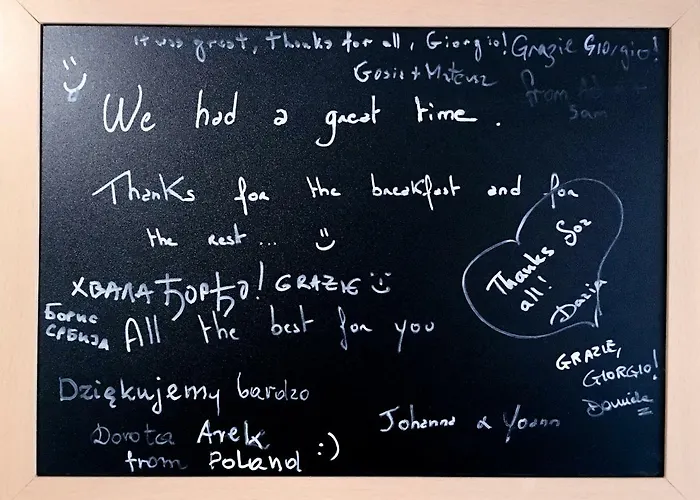 it was great, thanks for all, Giorgio!
Grazie GIORGIO!
Gosia + Mateusz
from
Sam
We had a great time.
Thanks for the breakfast and for
the rest ... :)
ХВАЛА ЂОРЂО! GRAZIE :)
Борис
СРБИЈА
All the best for you
Thanks for
all!
Daria
GRAZIE,
GIORGIO!
Daniela
Dziękujemy bardzo
Dorota Arek
from Poland :)
Johanna & Yoann